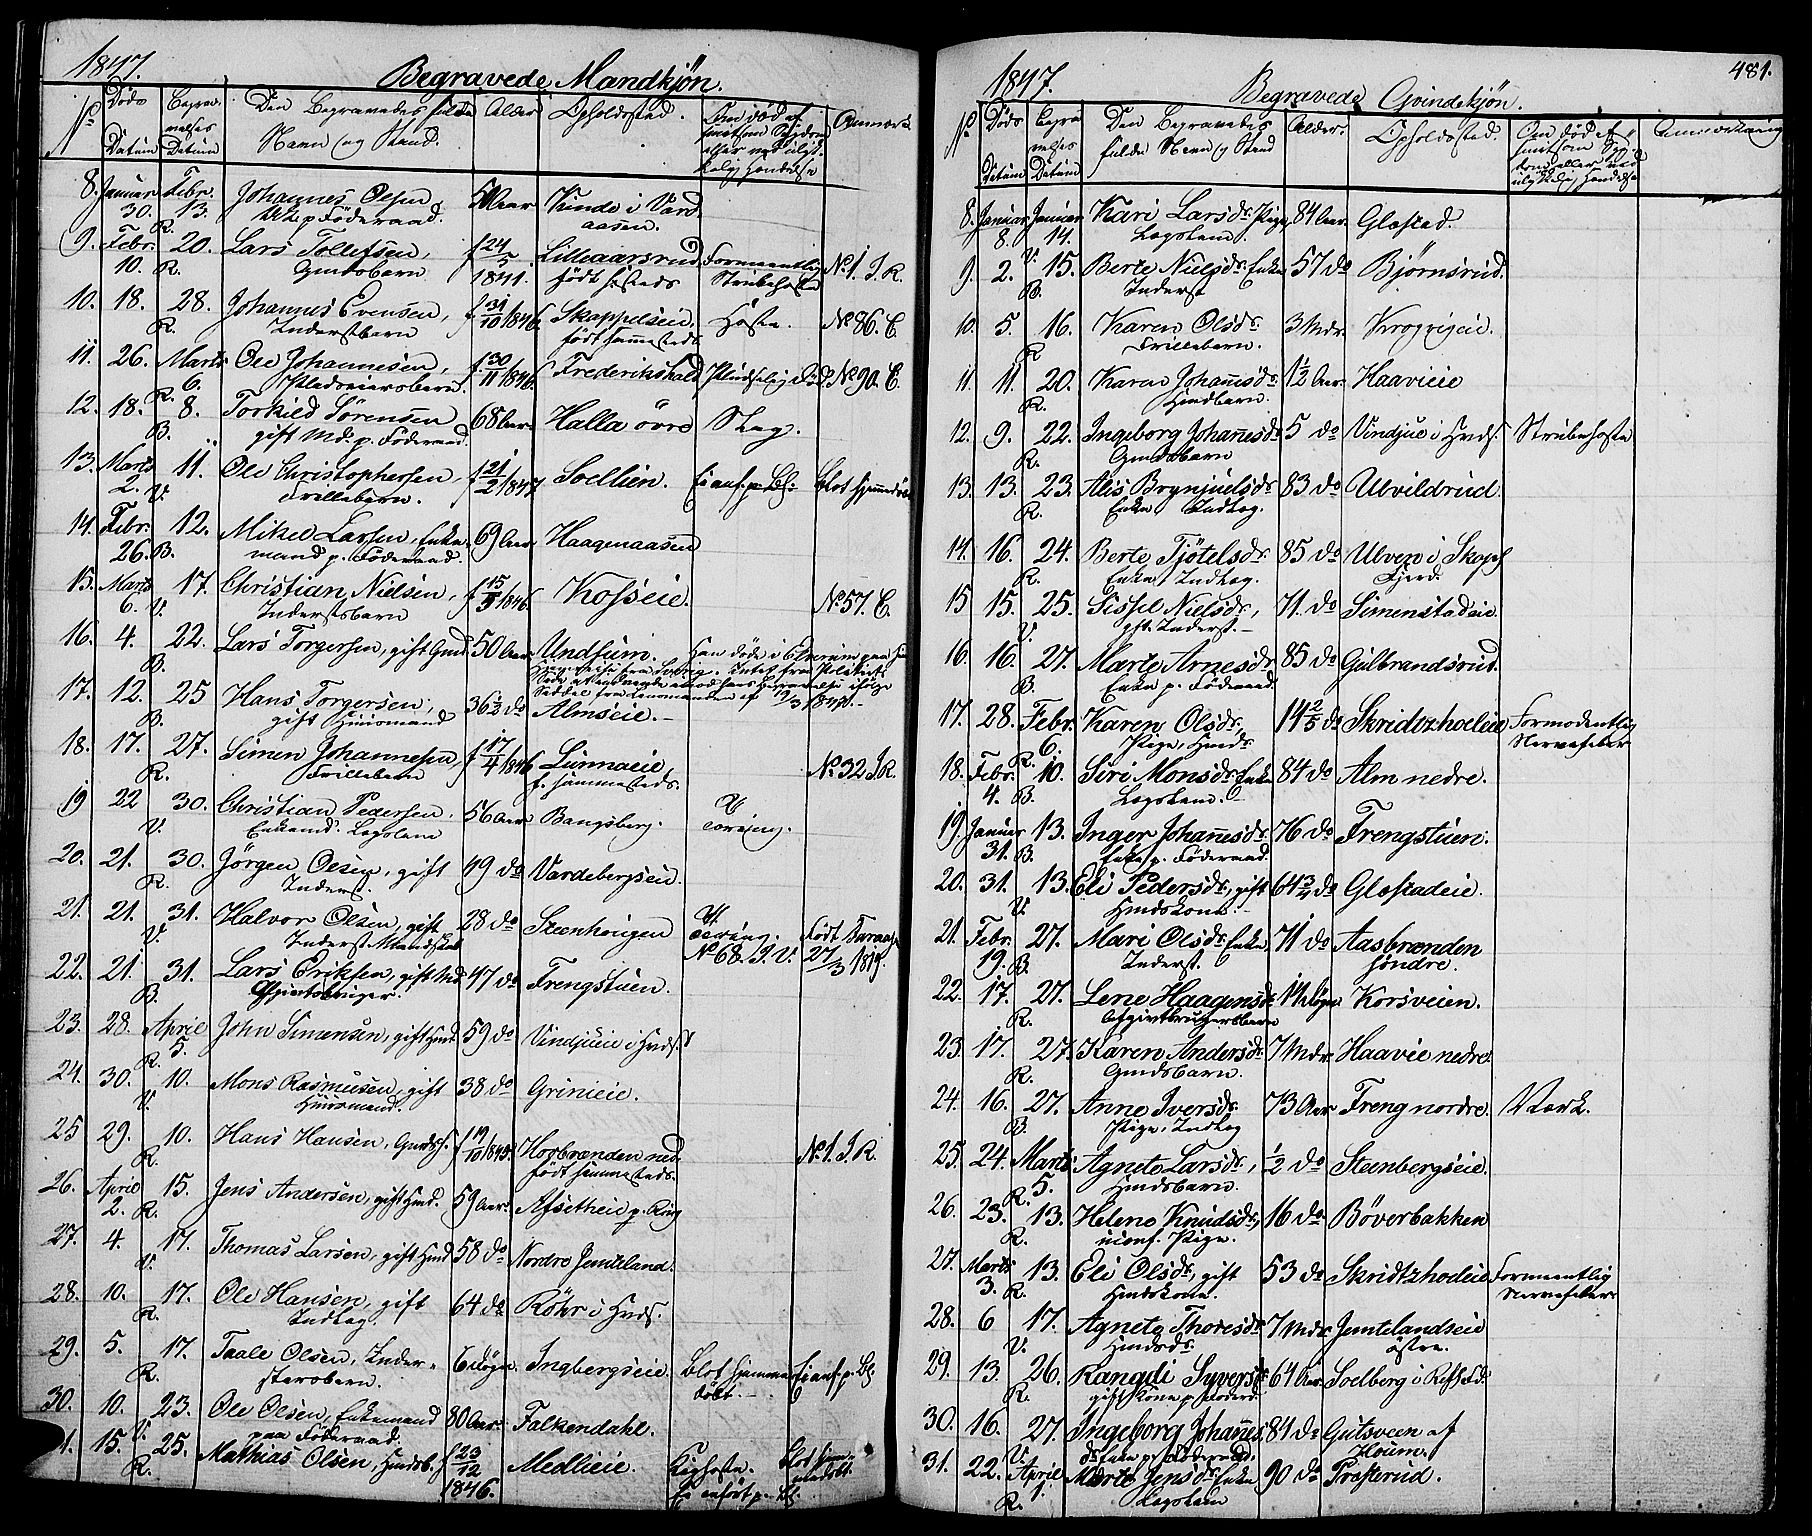 1847.
Begravede Mandkjøn.
No
Døds Datum
Begravelses Datum
Den Begravedes fulde Navn og Stand.
Alder
Opholdssted.
Om død af smitsom Sygdom eller ved ulykkelig Hændelse
Anmærk
8. Januar 30. Febr. 13. R. Johannes Olsen 50 Aar Kinde i Vardaasen.
p Föderaad.
9. Febr. 10. 20. R. Lars Tollefsen, f 24/5 1841. Lilleaarsrud Formentlig Strubehoste No 1. I. R.
Gmdsbarn födt
10. 18. 28. R. Johannes Evensen, f 31/10 1846. Skappelseie. Hoste. No 86. E.
Inderstbarn födt sammesteds
11. 26. Marts 6. R. Ole Johannesen, f 30/11 1846. Frederikshald Pludselig Död No 90. E.
Pladseiersbarn.
12. 18. 8. B. Torkild Sörensen 68 Aar Halla övre Slag.
gift Md. p. Föderaad.
13. Marts 2. 11. V. Ole Christophersen, f 21/2 1847 Soellien. Ei anf. p. Bl: Blot hjemmedöbt
Frillebarn.
14. Febr. 26. 12. B. Mikel Larsen, Enke- 69 Aar Haagenaasen
mand p. Föderaad.
15. Marts 6. 17. V. Christian Nielsen, f 15/9 1846. Kosseie. No 57. E.
Inderstsbarn
16. 4. 22. B. Lars Torgersen, gift Gmd. 50 Aar Undsum.
17. 12. 25 B. Hans Torgersen, 36½ do Almseie.
gift Huusmand
18. 17. 27. R. Simen Johannesen, f 17/4 1846 Lunnaeie, No 32 I R.
Frillebarn f. sammesteds.
19 22 30. V. Christian Pedersen, 56 Aar Bangsberg.
Enkemd. Lægslem
20. 21. 30. R. Jörgen Olsen, gift 49 do Vardebergseie.
Inderst.
21. 21. 31. V. Halvor Olsen, gift 28 do Steenhougen No 68. I. V. Födt 27/3 1819.
Inderst Mandskab
22. 21. 31. B. Lars Eriksen, gift Md. 47 do Frengstuen.
Afgivtsbruger.
23. 28. April 5. R. John Simensen, gift Hmd. 59 do Vindjueie i Hvds.
24. 30. 10. V. Mons Rasmussen, gift 38 do Grinieie.
Huusmand.
25 29. 10. R. Hans Hansen, Gmdss. f 19/10 1845. Horbrænden ned. No 1. I R.
födt sammesteds.
26. April 2. 15. R. Jens Andersen, gift Hmd. 59 Aar. Afsetheie p. Ring
27. 4. 17. V. Thomas Larsen, gift Hmd 58 do Nordre Jemtland.
28. 10. 17. R. Ole Hansen, gift 64 do Röhr i Hvds.
Indlæg.
29. 5. 17. R. Taale Olsen, Inder- 6 Dögn Ingbergseie. Blot hjemmedöbt. Ei anf. p. Bl.
stersbarn.
30. 10. 23. V. Ole Olsen, Enkemand 80 Aar Falkendahl.
paa Föderaad.
1. 15. 25. R. Mathias Olsen, Hmdsb. f 23/12 1846. Medlieie. Kighoste. Ei anfört p. Bl. Blot hjemmedöbt.
1847.
481.
Begravede Qvindekjøn.
No
Døds Datum
Begravelses Datum
Den Begravedes fulde Navn og Stand
Alder.
Opholdssted
Om død af smitsom Sygdom eller ved ulykkelig Hændelse
Anmærkning
8. Januar 8. Januar 14. V. Kari Larsdr. Pige, 84 Aar. Gløstad.
Lægslem.
9. 2. 15. B. Berte Nielsdr. Enke 57 do Bjørnsrud.
Inderst
10. 5. 16. R Karen Olsdr. 3 Mdr. Krogvigeie.
Frillebarn.
11. 11. 20. R. Karen Johansdr. 1½ Aar. Haavieie
Hmdbarn.
12. 9. 22. R. Ingeborg Johansdr. 5 do Vindjue i Hvds. Strubehoste
Gmdsbarn
13. 13. 23. R. Alis Brynjulsdr. 83 do Ulvildrud.
Enke Indlæg.
14. 16. 24. R. Berte Tjötelsdr. 85 do Ulven i Skap
Enke Indlæg. Fjerd.
15 15. 25. V. Sissel Nielsdr, 71 do Simenstadeie.
gft. Inderst.
16. 16. 27. B. Marte Arnesdr. 85 do Gulbrandsrud.
Enke p. Föderaad.
17. 28. Febr. 6. R. Karen Olsdr, 14 2/5 do Skridtzhoeleie Formodentlig
Pige, Hmds. Nervefeber
18. Febr. 4. 10. B. Siri Monsdr. Enke 84 do Alm nedre.
Lægslem.
19. Januar 31. 13. B. Inger Johansdr. 76 do Frengstuen.
Enke p. Föderaad.
20. 31. 13. V. Eli Pedersdr, gift 64¾ do Gløstadeie.
Hmdskone.
21. Febr. 19. 27. B. Mari Olsdr. Enke, 71 do Aasbrænden
Inderst. söndre.
22. 17. 27. R. Lene Haagensdr. Korsveien.
Afgivtbrugersbarn
23. 17. 27. R. Karen Andersdr. 7 Mdr. Haavie nedre.
Gmdsbarn.
24. 16. 27. B. Anne Iversdr. 73 Aar Freng nordre. Værk.
Pige, Indlæg
25. 24. Marts 5. R. Agnete Larsdr., ½ do Steenbergseie.
Hmdsbarn.
26. 23. 13. R. Helene Knudsdr, 16 do Böverbakken
uconf. Pige.
27. Marts 3. 13. R. Eli Olsdr, gift 53 do Skridtzholeie Formentlig
Hmdskone. Nervefeber
28. 6 17. V. Agnete Thoresdr. 7 Mdr. Jemtelandseie
Hmdsdr. östre.
29. 13. 26. R. Rangdi Syversdr. 64 Aar. Soelberg i
gift Kone p. Föderd.
30. 16. 27. V. Ingeborg Johannes- 84 do Gutsveen af
dr. Enke p. Föderaad. Houm.
31. 22. April 1. R. Marte Jensdr. Enke 90 do Prosterud.
Lægslem